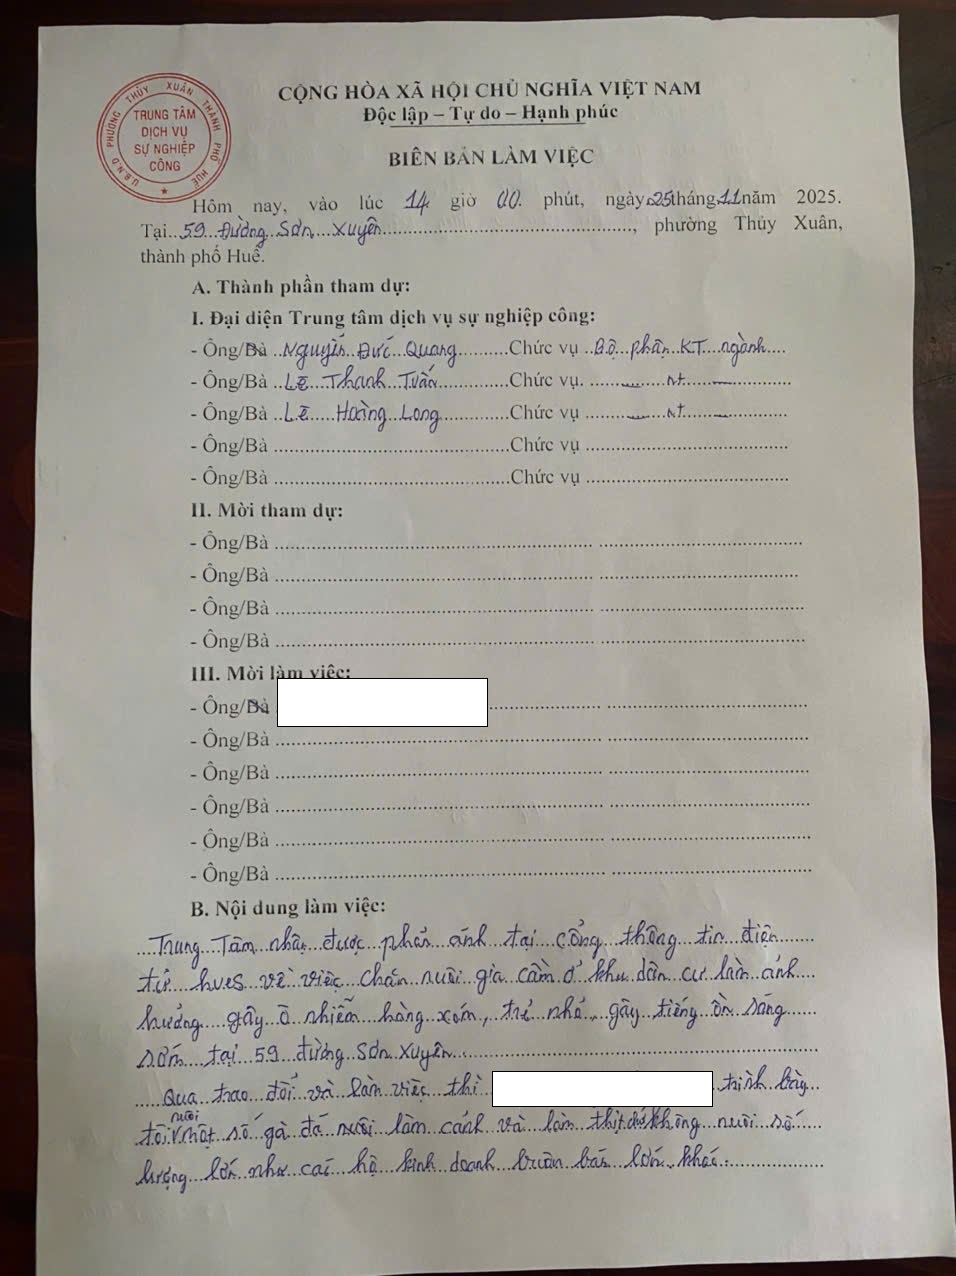 U.B.N.D PHƯỜNG THỦY XUÂN THÀNH PHỐ HUẾ
TRUNG TÂM
DỊCH VỤ
SỰ NGHIỆP
CÔNG
CỘNG HÒA XÃ HỘI CHỦ NGHĨA VIỆT NAM
Độc lập – Tự do – Hạnh phúc
BIÊN BẢN LÀM VIỆC
Hôm nay, vào lúc 14 giờ 00 phút, ngày 25 tháng 11 năm 2025.
Tại 59 Đường Sơn Xuyên, phường Thủy Xuân,
thành phố Huế.
A. Thành phần tham dự:
I. Đại diện Trung tâm dịch vụ sự nghiệp công:
- Ông/Bà Nguyễn Đức Quang Chức vụ Bộ phận KT ngành
- Ông/Bà Lê Thanh Tuấn Chức vụ. nt
- Ông/Bà Lê Hoàng Long Chức vụ nt
- Ông/Bà Chức vụ
- Ông/Bà Chức vụ
II. Mời tham dự:
- Ông/Bà
- Ông/Bà
- Ông/Bà
- Ông/Bà
III. Mời làm việc:
- Ông/Bà
- Ông/Bà
- Ông/Bà
- Ông/Bà
- Ông/Bà
- Ông/Bà
B. Nội dung làm việc:
Trung Tâm nhận được phản ánh tại cổng thông tin điện
tử hues về việc chăn nuôi gia cầm ở khu dân cư làm ảnh
hưởng gây ô nhiễm hàng xóm, trẻ nhỏ, gây tiếng ồn sáng
sớm tại 59 đường Sơn Xuyên.
Qua trao đổi và làm việc thì trình bày
tôi nuôi một số gà đá nuôi làm cảnh và làm thịt chứ không nuôi số
lượng lớn như các hộ kinh doanh buôn bán lớn khác.